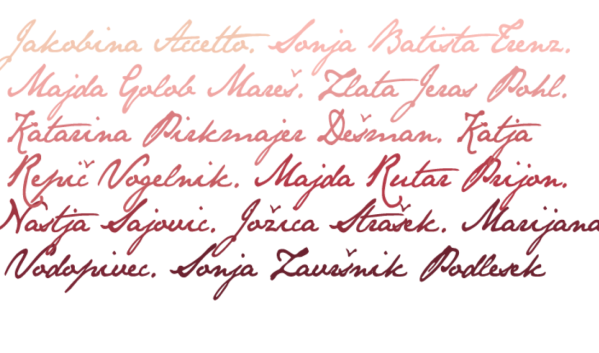 Jakobina Accetto. Sonja Batista Trenz.
Majda Golob Mareš. Zlata Jeras Pohl.
Katarina Pirkmajer Dešman. Katja
Repič Vogelnik. Majda Rutar Prijon.
Nastja Sajovic. Jožica Strašek. Marijana
Vodopivec. Sonja Završnik Podlesek